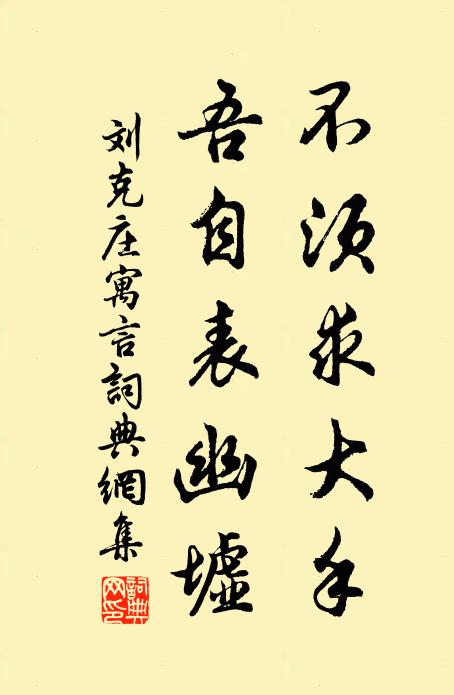 不须求大手
吾自表幽墟
刘克庄寓言詞典網集
詞典网印